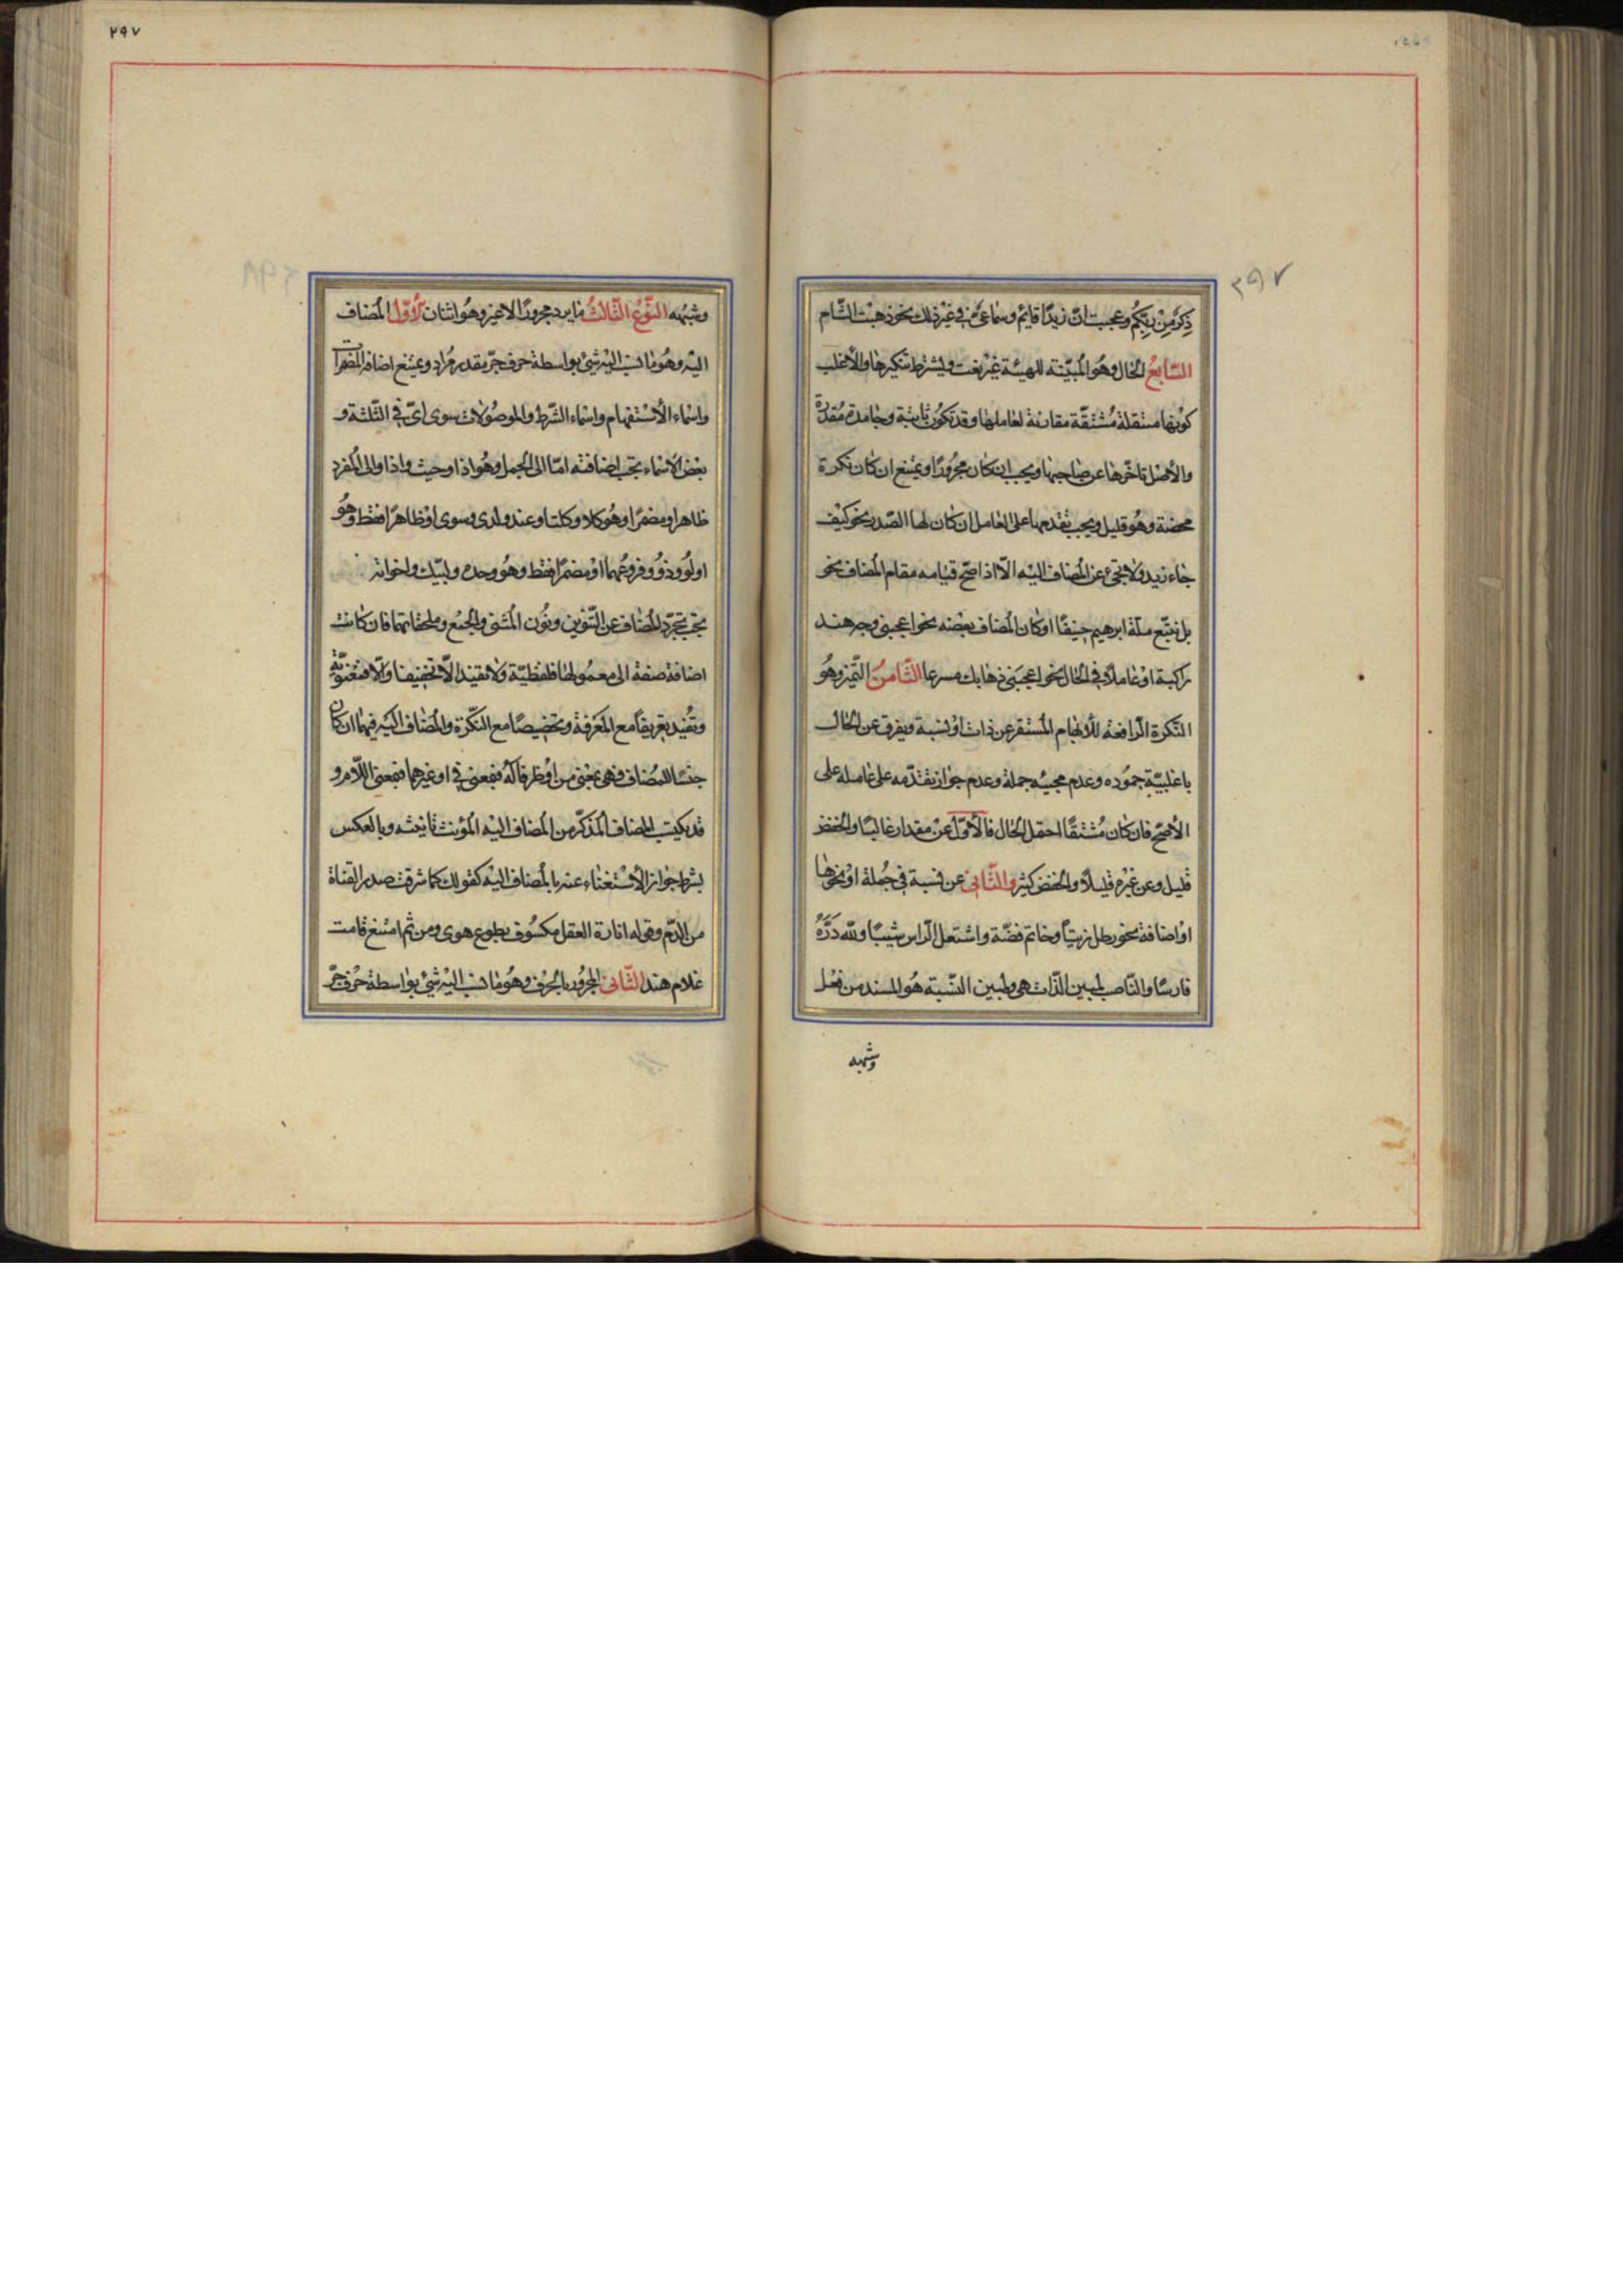 ٢٩٧
ذِكرٌ مِنْ رَبِّكُم وعجبت انّ زيدًا قايم وسماعىّ فى غيْر ذلك نحو ذهبْت الشّام
السّابعُ الحال وهُو المُبيّنة للهيئة غيْر نعت ويشترط تنكيرها والأغلب
كونها منتقلة مُشتقّة مقارنة لعاملها وقد تكوُن ثابتة وجامدة ومُقدّرة
والأصْل تاخّرها عن صاحبها ويجب ان كان مجرُورًا ويمتنع ان كان نكرة
محضة وهُو قليل ويجب تقدمها على العامل ان كان لها الصّدر نحو كيْف
جاء زيد ولا تجىء عن المُضاف اليْه الّا اذا صحّ قيامه مقام المُضاف نحو
بل نتبّع ملّة ابرهيم حنيفًا او كان المُضاف بعْضه نحو اعجبنى وجر هند
راكبة اوْ عاملاً فى الحال نحو اعجبَنى ذهابك مسرعا الثّامنُ التّميز وهُو
النّكرة الرّافعة للأبهام المُسْتقر عن ذات اوْ نسبة ويفرق عن الحال
باغلبيّة جمُوده وعدم مجيئه جملة وعدم جواز تقدّمه على عامله على
الأصحّ فان كان مُشْتقًّا احتمل الحال فالأوّل عنْ مقدار غالبًا والخفض
قليل وعن غيْره قليلاً والخفض كثير والثّانى عن نسبة فى جُملة اوْ نحوها
اوْ اضافة نحو رطل زيتاً وخاتم فضّة واشتعل الرّاس شيبًا ولله دَرّهُ
فارسًا والنّاصب لمبين الذّات هى ولمبين النّسْبة هُو المسند من فعْل
وشبهه
٢٩٧
وشبْهه النّوْعُ الثّالثُ ما يرد مجرورًا لا غير وهُو اثنان الأوّل المُضاف
اليْه وهُو ما نسب اليْه شىْ بواسطة حرف جرّ مقدر مُراد ويمتنع اضافة المضمرات
واسْماء الأسْتفهام واسْماء الشّرط والموصُولات سوى اىّ فى الثّلثة و
بعْض الاسْماء يجب اضافته امّا الى الجمل وهُو اذا وحيث واذ او الى المُفرد
ظاهرا ومضمرًا وهُو كلا وكلتا وعند ولدى وسوى اوْ ظاهرًا فقط وهُو
اولُو وذوُ وفروعُهما اوْ مضمرًا فقط وهُو وحده ولبيّك واخواته
يجب تجرّد المُضاف عن التّنوين ونُون المُثنى والجمْع وملحقاتهما فان كانت
اضافة صفة الى معمُولها فلفظيّة ولا تفيد الّا تخفيفا والّا فمعْنويّة
وتُفيد تعريفًا مع المَعْرفة وتخصيصًا مع النّكرة والمُضاف اليْه فيهما ان كان
جنسًا للمُضاف فهى بمعْنى من اوْ ظرفا لهُ فبمعنى فى او غيرهما فبمعنى اللّام و
قد يكتسب المضاف المُذكّر من المُضاف اليْه المُؤنث تانيثه وبالعكس
بشرط جواز الأسْتغناء عنه بالمُضاف اليْه كقوله كما شرقت صدر القناة
من الدّم وقوله انارة العقل مكسُوف بطوع هوى ومن ثمّ امتنع قامت
غلام هند الثّانى المجرُور بالحرْف وهُو ما نسب اليْه شىْ بواسطة حرْف جرّ